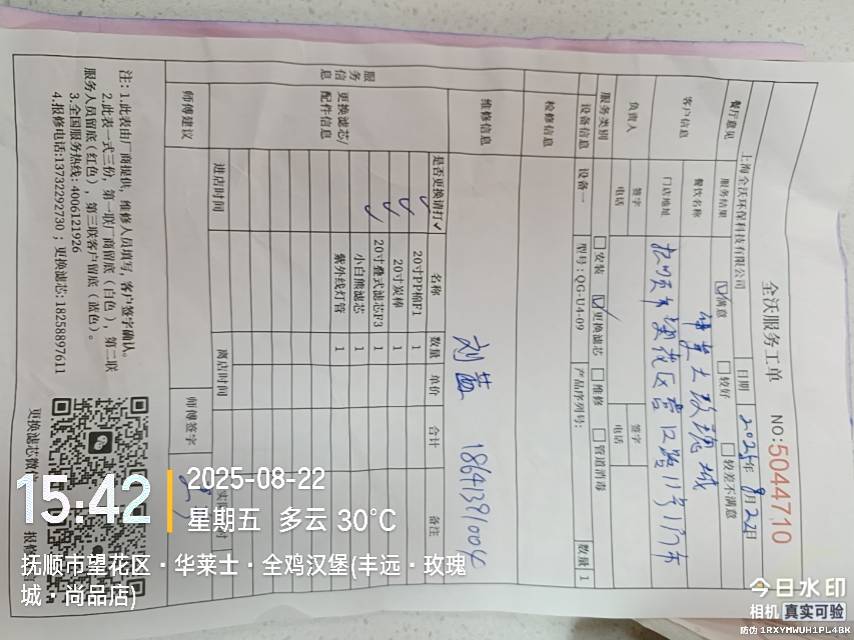 全沃服务工单
NO:5044710
上海全沃环保科技有限公司 日期 2025年8月22日
餐厅意见 服务结果 ☑满意 □较好 □较差不满意
客户信息 餐饮名称 华莱士玫瑰城
门店地址 抚顺市望花区
负责人 签字 签字
电话 电话
服务类别 □安装 ☑更换滤芯 □维修 □管道消毒
设备信息 设备一 型号:QG-U4-09 产品序列号: 数量 1
检修信息
维修信息 刘 18641391004
服务信息
更换滤芯/配件信息
是否更换请打✓ 名称 数量 单价 合计 备注
✓ 20寸PP棉F1 1
✓ 20寸炭棒 1
✓ 20寸叠式滤芯F3 1
小白熊滤芯 1
紫外线灯管 1
进店时间 离店时间
师傅建议 师傅签字
注:1.此表由厂商提供,维修人员填写,客户签字确认。
2.此表一式三份,第一联厂商留底(白色),第二联
服务人员留底(红色),第三联客户留底(蓝色)。
3.全国服务热线:4006121926
4.报修电话:13732292730;更换滤芯:18258897611
更换滤芯微信
15:42
2025-08-22
星期五 多云 30℃
抚顺市望花区·华莱士·全鸡汉堡(丰远·玫瑰
城·尚品店)
今日水印
相机 真实可验
防伪 1RXYMWUH1PL4BK